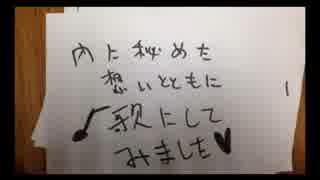 内に秘めた
想いとともに
♪歌にして
みました♥